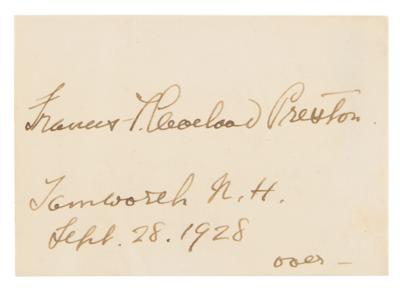 Frances F. Cleveland Preston.
Tamworth N.H.
Sept. 28. 1928
over —